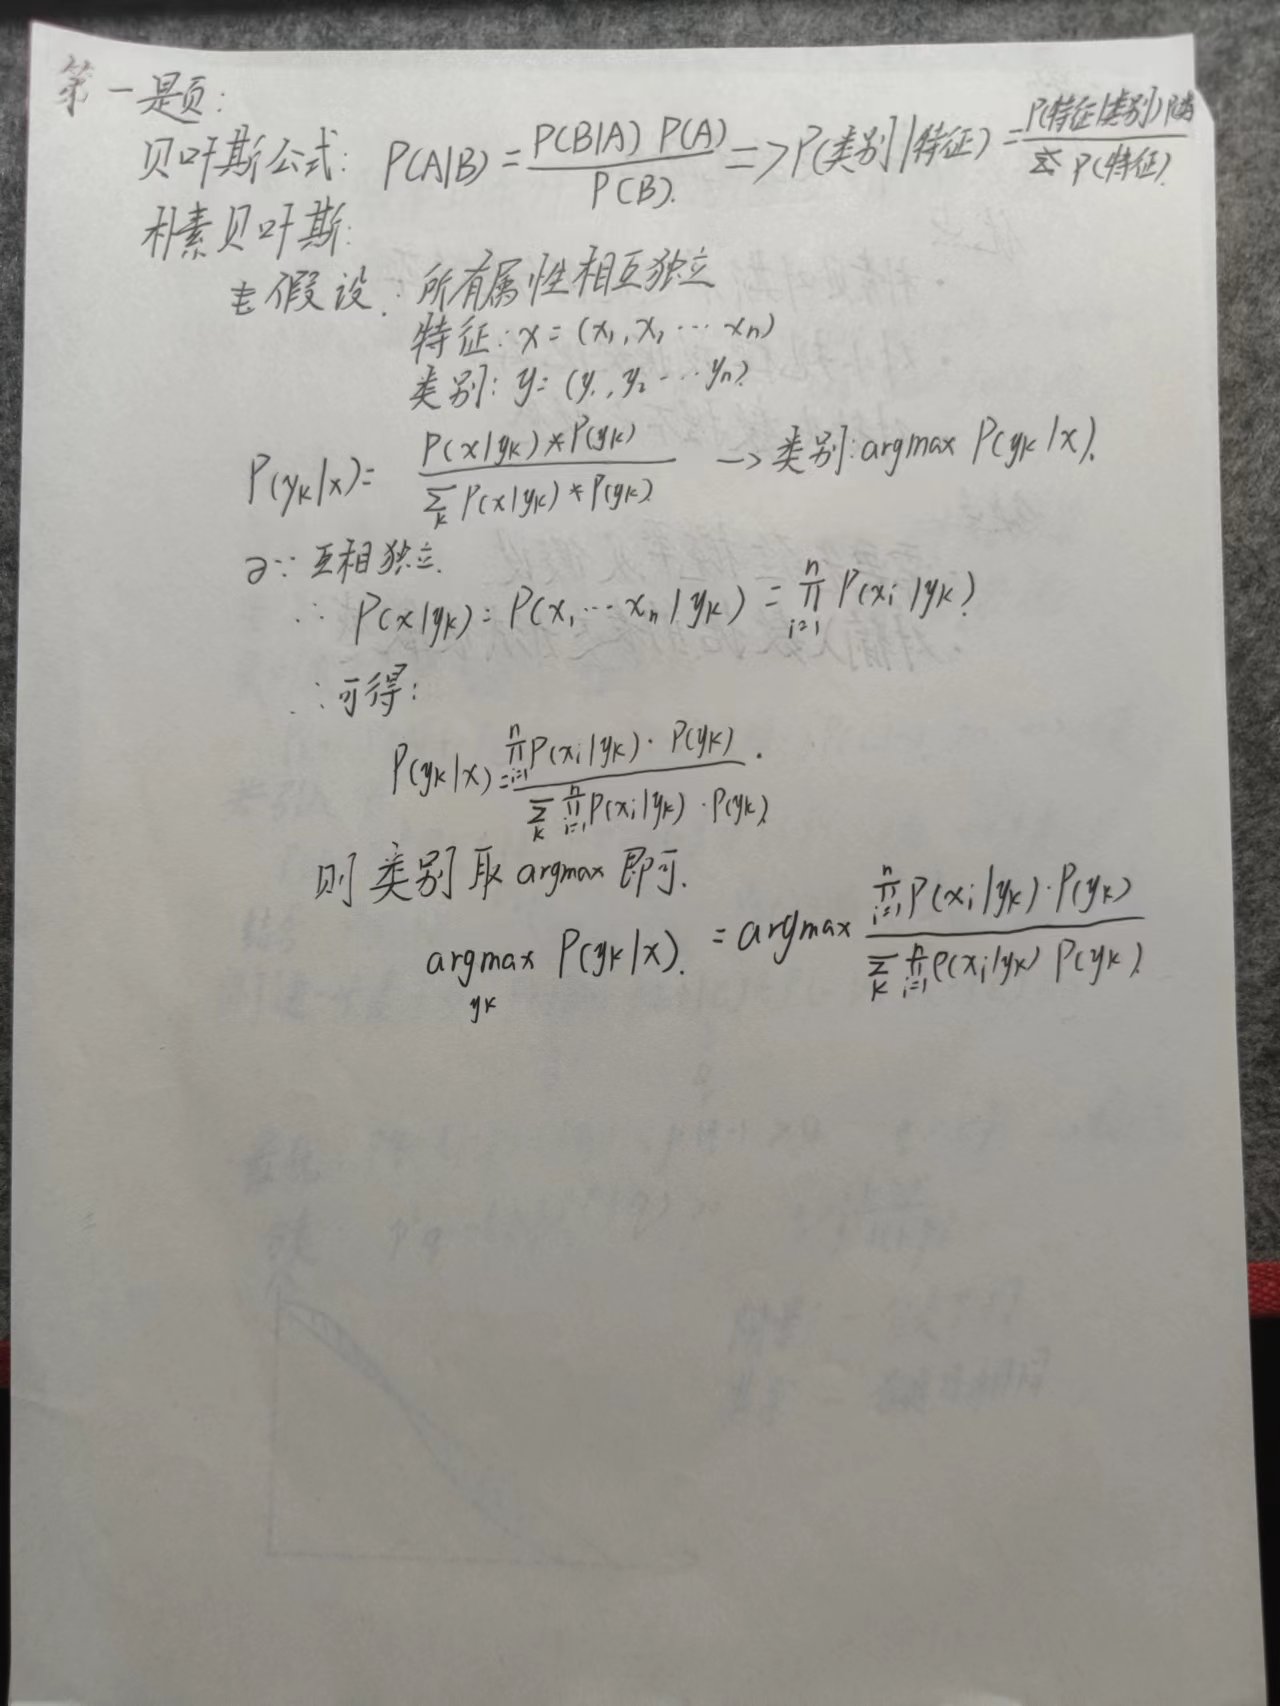 第一题:
贝叶斯公式: P(A|B) = P(B|A) P(A) / P(B). => P(类别|特征) = P(特征|类别) P / P(特征).
朴素贝叶斯:
假设: 所有属性相互独立
特征: x = (x₁, x₁ ... xₙ)
类别: y = (y₁, y₂ ... yₙ).
P(yₖ|x) = P(x|yₖ) * P(yₖ) / Σₖ P(x|yₖ) * P(yₖ). -> 类别: argmax P(yₖ|x).
∵ 互相独立.
∴ P(x|yₖ) = P(x₁ ... xₙ|yₖ) = ∏ᵢ₌₁ⁿ P(xᵢ|yₖ).
∴ 可得:
P(yₖ|x) = ∏ᵢ₌₁ⁿ P(xᵢ|yₖ) · P(yₖ) / Σₖ ∏ᵢ₌₁ⁿ P(xᵢ|yₖ) · P(yₖ).
则类别取 argmax 即可.
argmax_yₖ P(yₖ|x). = argmax ∏ᵢ₌₁ⁿ P(xᵢ|yₖ) · P(yₖ) / Σₖ ∏ᵢ₌₁ⁿ P(xᵢ|yₖ) P(yₖ).